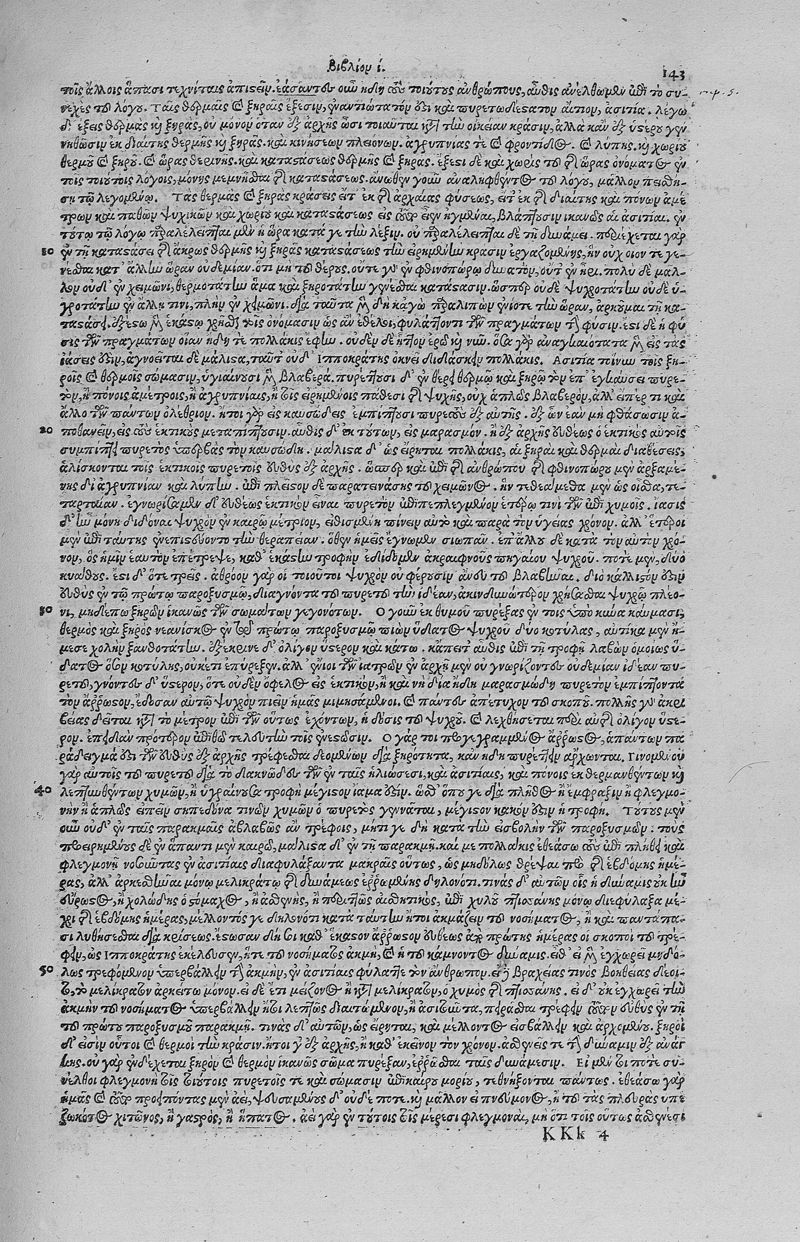 Βιβλίον ι. 143
τοῖς ἄλλοις ἅπασι τεχνίταις ἀπιεῖν. ἐάσαντες οὖν ἤδη τοὺς τοιούτους ἀνθρώπους, αὖθις ἀνέλθωμεν ἐπὶ τὸ συ-
νεχὲς τοῦ λόγου. Ταῖς θερμαῖς καὶ ξηραῖς ἕξεσιν, ἐναντιώτατόν ἐστι καὶ πυρετωδέστατον αἴτιον, ἀσιτία. λέγω
δ' ἕξεις θερμὰς καὶ ξηράς, οὐ μόνον ὅταν ἐξ ἀρχῆς ὦσι τοιαῦται κατὰ τὴν οἰκείαν κρᾶσιν, ἀλλὰ κἂν ἐξ ὑστέρου γεν-
νηθῶσιν ἐκ διαίτης θερμῆς καὶ ξηρᾶς. καὶ κινήσεων πλειόνων. ἀγρυπνίας τε καὶ φροντίδος καὶ λύπης, καὶ χωρίου
θερμοῦ καὶ ξηροῦ. καὶ ὥρας θερινῆς. καὶ καταστάσεως θερμῆς καὶ ξηρᾶς. ἔξεστι δὲ καὶ χωρὶς τοῦ τῆς ὥρας ὀνόματος ἐν
τοῖς τοιούτοις λόγοις, μόνης μεμνῆσθαι τῆς καταστάσεως. ἄνωθεν γοῦν ἀναληφθέντος τοῦ λόγου, μᾶλλον πεισθή-
ση τῷ λεγομένῳ. Τὰς θερμὰς καὶ ξηρὰς κράσεις εἴτ' ἐκ τῆς ἀρχαίας φύσεως, εἴτ' ἐκ τῆς διαίτης καὶ πόνων ἀμέ-
τρων καὶ παθῶν ψυχικῶν καὶ χωρίου καὶ καταστάσεως εἰς τοῦτο εἶεν ἠγμέναι, βλάπτουσιν ἱκανῶς αἱ ἀσιτίαι. ἐν
τούτῳ τῷ λόγῳ παραλέλειπται μὲν ἡ ὥρα κατά γε τὴν λέξιν. οὐ παραλέλειπται δὲ τῇ δυνάμει. περιέχεται γὰρ
10 ἐν τῇ καταστάσει τῆς ἄκρως θερμῆς καὶ ξηρᾶς καταστάσεως τὴν εἰρημένην κρᾶσιν ἐργαζομένης, ἣν οὐχ οἷόν τε γε-
νέσθαι κατ' ἄλλην ὥραν οὐδεμίαν. ὅτι μὴ τὸ θέρος. οὔτε γὰρ ἐν φθινοπώρῳ δυνατόν, οὔτ' ἐν ἦρι. πολὺ δὲ μᾶλ-
λον οὐδ' ἐν χειμῶνι, θερμοτάτην ἅμα καὶ ξηροτάτην γενέσθαι κατάστασιν. ὥσπερ οὐδὲ ψυχροτάτην οὐδὲ ὑ-
γροτάτην ἐν ἄλλῃ τινί, πλὴν ἐν χειμῶνι. διὰ ταῦτα μὲν δὴ κἀγὼ παραλιπὼν ἐνίοτε τὴν ὥραν, ἀρκοῦμαι τῇ κα-
ταστάσει. ἔξεστω μὲν ἑκάστῳ χρῆσθαι τοῖς ὀνόμασιν ὡς ἂν ἐθέλοι, φυλάττοντι τῶν πραγμάτων τὴν φύσιν. ἔστι δὲ ἡ φύ-
σις τῶν πραγμάτων οἵαν ἤδη τε πολλάκις ἔφην. οὐδὲν δὲ ἧττον ἐρῶ καὶ νῦν. ὅσα γὰρ ἀναγκαιότατα μὲν εἰς τὰς
ἰάσεις ἐστίν, ἀγνοεῖται δὲ μάλιστα, ταῦτ' οὐδ' Ἱπποκράτης ὀκνεῖ διδάσκειν πολλάκις. Ἀσιτία τοίνυν τοῖς ξη-
ροῖς καὶ θερμοῖς σώμασιν, ὑγιαίνουσι μὲν βλαβερά. πυρέττουσι δ' ἐν θερμῷ καὶ ξηρῷ τὸν ἐπ' ἐγκαύσει πυρε-
τόν, ἢ πόνοις ἀμέτροις, ἢ ἀγρυπνίαις, ἢ τοῖς εἰρημένοις πάθεσι τῆς ψυχῆς, οὐχ ἁπλῶς βλαβερόν, ἀλλ' εἴπερ τι καὶ
ἄλλο τῶν πάντων ὀλέθριον. ἤτοι γὰρ εἰς καυσώδεις ἐμπίπτουσι πυρετοὺς ἐξ αὐτῆς. ἐξ ὧν ἐὰν μὴ φθάσωσιν ἀ-
20 ποθανεῖν, εἰς τοὺς ἑκτικοὺς μεταπίπτουσιν. αὖθις δ' ἐκ τούτων, εἰς μαρασμόν. ἢ ἐξ ἀρχῆς εὐθέως ὁ ἑκτικὸς αὐτοῖς
συμπίπτει πυρετὸς ὑπερβὰς τὸν καυσώδη. μάλιστα δ' ὡς εἴρηται πολλάκις, αἱ ξηραὶ καὶ θερμαὶ διαθέσεις,
ἁλίσκονται τοῖς ἑκτικοῖς πυρετοῖς εὐθὺς ἐξ ἀρχῆς. ὥσπερ καὶ ἐπὶ τῆς ἀνθρώπου τῆς φθινοπώρου μὲν ἀρξαμέ-
νης δι' ἀγρυπνίαν καὶ λύπην. ἐπὶ πλεῖστον δὲ παρατεινάσης τοῦ χειμῶνος. ἣν τεθέαμεθα μὲν ὡς οἶσθα, τε-
ταρταίαν. ἐγνωρίζομεν δ' εὐθέως ἑκτικὸν εἶναι πυρετὸν ἐπιπεπλεγμένον ἑτέρῳ τινὶ τῶν ἐπὶ χυμοῖς. ἴασις
δ' ἦν μόνη διδόναι ψυχρὸν ἐν καιρῷ μετρίον, εἰθισμένῃ πίνειν αὐτὸ καὶ παρὰ τὸν ὑγιείας χρόνον. ἀλλ' ἕτεροι
μὲν ἐπὶ ταύτης ἐπιστεύοντο τὴν θεραπείαν. ὅθεν ἡμεῖς ἔγνωμεν σιωπᾶν. ἐπ' ἄλλου δὲ κατὰ τὸν αὐτὸν χρό-
νον, ὃς ἡμῖν ἑαυτὸν ἐπέτρεψε, καθ' ἑκάστην τροφὴν ἐδίδομεν ἀκραιφνοῦς πηγαίου ψυχροῦ. ποτὲ μὲν, δύο
κυάθους. ἔστι δ' ὅτε τρεῖς. ἀθρόον γὰρ οἱ τοιοῦτοι ψυχρὸν οὐ φέρουσιν ἄνευ τοῦ βλαβῆναι. διὸ κάλλιστόν ἐστιν
εὐθὺς ἐν τῷ πρώτῳ παροξυσμῷ, διαγνόντα τοῦ πυρετοῦ τὴν ἰδέαν, ἀκινδυνότερον χρήσασθαι ψυχρῷ πλέο-
30 νι, μηδέπω ξηρῶν ἱκανῶς τῶν σωμάτων γεγονότων. Ὁ γοῦν ἐκ θυμοῦ πυρέξας ἐν τοῖς ὑπὸ κύνα καύμασι,
θερμὸς καὶ ξηρὸς νεανίσκος ἐν τῷ πρώτῳ παροξυσμῷ πιὼν ὕδατος ψυχροῦ δύο κοτύλας, αὐτίκα μὲν ἤ-
μεσε χολὴν ξανθοτάτην. ἐξέκρινε δ' ὀλίγον ὕστερον καὶ κάτω. κἄπειτ' αὖθις ἐπὶ τῇ τροφῇ λαβὼν ὁμοίως ὕ-
δατος ὅσον κοτύλης, οὐκέτι ἐπύρεξεν. ἀλλ' ἔνιοι τῶν ἰατρῶν ἐν ἀρχῇ μὲν οὐ γνωρίζοντες οὐδεμίαν ἰδέαν πυ-
ρετοῦ, γνόντες δ' ὕστερον, ὅτε οὐδὲν ὄφελος εἰς ἑκτικόν, ἢ καὶ νὴ δία ἤδη μαρασμώδη πυρετὸν ἐμπίπτοντα
τὸν ἄρρωστον, ἔδοσαν αὐτῷ ψυχρὸν πιεῖν ἡμᾶς μιμησάμενοι. καὶ παντὸς ἀπέτυχον τοῦ σκοποῦ. πολλῆς γὰρ ἀκρι-
βείας δεῖται κατὰ τὸ μέτρον ἐπὶ τῶν οὕτως ἐχόντων, ἡ δόσις τοῦ ψυχροῦ. καὶ λεχθήσεται περὶ αὐτῆς ὀλίγον ὕστε-
ρον. ἐπειδὰν πρότερον ἐπιθῶ τελευτὴν τοῖς ἐνεστῶσιν. Ὁ γάρ τοι προγεγραμμένος ἄρρωστος, ἁπάντων πα-
ράδειγμά ἐστι τῶν εὐθὺς ἐξ ἀρχῆς τρέφεσθαι δεομένων διὰ ξηρότητα, κἂν ἤδη πυρέττειν ἄρχωνται. Γινομένου
γὰρ αὐτοῖς τοῦ πυρετοῦ διὰ τὸ διακνῶδες τῶν ἐν ταῖς ἡλιώσεσι, καὶ ἀσιτίαις, καὶ πόνοις ἐκθερμανθέντων καὶ
40 λεπτυνθέντων χυμῶν, ἡ ὑγραίνουσα τροφὴ μέγιστον ἴαμά ἐστιν. ὡς ὅπου γε διὰ πλῆθος ἢ ἔμφραξιν ἢ φλεγμο-
νὴν ἢ ἁπλῶς εἰπεῖν σηπεδόνα τινῶν χυμῶν ὁ πυρετὸς γεννᾶται, μέγιστον κακόν ἐστιν ἡ τροφή. Τούτους μὲν
οὖν οὐδ' ἐν ταῖς παρακμαῖς ἀβλαβῶς ἂν τρέφοις, μήτι γε δὴ κατὰ τὴν εἰσβολὴν τῶν παροξυσμῶν. τοὺς
προειρημένους δὲ ἐν ἅπαντι μὲν καιρῷ, μάλιστα δ' ἐν τῇ παρακμῇ. καί με πολλάκις ἐθεάσω τοὺς ἐπὶ πλήθει καὶ
φλεγμονῇ νοσοῦντας ἐν ἀσιτίαις διαφυλάξαντα μακραῖς οὕτως, ὡς μηδόλως θρέψαι πρὸ τῆς ἑβδόμης ἡμέ-
ρας, ἀλλ' ἀρκεσθῆναι μόνῳ μελικράτῳ τῆς δυνάμεως ἐρρωμένης δηλονότι. τινὰς δ' αὐτῶν οἷς ἡ δύναμις οὐκ ἦν
εὔρωστος, ἢ χολώδης ὁ στόμαχος, ἢ ἀσθενής, ἢ περιττῶς αἰσθητικός, ἐπὶ χυλοῦ πτισσάνης μόνῳ διεφύλαξα μέ-
χρι τῆς ἑβδόμης ἡμέρας, μέλλοντός γε δηλονότι κατὰ ταύτην ἤτοι ἀκμάζειν τοῦ νοσήματος, ἢ καὶ παντάπα-
σι λυθήσεσθαι διὰ κρίσεως. ἔστωσαν δή σοι καθ' ἕκαστον ἄρρωστον εὐθέως ἀπὸ πρώτης ἡμέρας οἱ σκοποὶ τοῦ τρέ-
φειν, ὡς Ἱπποκράτης ἐκέλευσεν, ἥ τε τοῦ νοσήματος ἀκμή, καὶ ἡ τοῦ κάμνοντος δύναμις. εἶθ' εἰ μὲν ἐγχωρεῖ μηδό-
50 λως τρεφόμενον ὑπερβάλλειν τὴν ἀκμήν, ἐν ἀσιτίαις φύλαττε τὸν ἄνθρωπον. εἰ δὲ βραχείας τινὸς βοηθείας δέοι-
το, τὸ μελίκρατον ἀρκείτω μόνον. εἰ δὲ ἔτι μείζονος ἢ κατὰ μελίκρατον, ὁ χυμὸς τῆς πτισσάνης. εἰ δ' οὐκ ἐγχωρεῖ τὴν
ἀκμὴν τοῦ νοσήματος ὑπερβάλλειν ἤτοι λεπτῶς διαιτώμενον, ἢ ἀσιτοῦντα, πειρᾶσθαι τρέφειν τοῦτον εὐθὺς ἐν τῇ
τοῦ πρώτου παροξυσμοῦ παρακμῇ. τινὰς δ' αὐτῶν, ὡς εἴρηται, καὶ μέλλοντος εἰσβάλλειν καὶ ἀρχομένου. ξηροὶ
δ' εἰσὶν οὗτοι καὶ θερμοὶ τὴν κρᾶσιν. ἤτοι γ' ἐξ ἀρχῆς, ἢ καθ' ἐκεῖνον τὸν χρόνον. ἀσθενεῖς τε τὴν δύναμιν ἐξ ἀνάγ-
κης. οὐ γὰρ ἐνδέχεται ξηρὸν καὶ θερμὸν ἱκανῶς σῶμα πυρέξαν, ἐρρῶσθαι ταῖς δυνάμεσιν. Εἰ μέντοι ποτὲ συ-
νέλθοι φλεγμονὴ τοῖς τοιούτοις πυρετοῖς τε καὶ σώμασιν ἐπικαίρου μορίου, τεθνήξονται πάντως. ἐθεάσω γὰρ
ἡμᾶς καὶ τοῦτο προειπόντας μὲν ἀεί, ψευσαμένους δ' οὐδέποτε. καὶ μᾶλλον εἰ πνεύμονος, ἢ τοῦ τὰς πλευρὰς ὑπε-
ζωκότος χιτῶνος, ἢ γαστρός, ἢ ἥπατος. ἀεὶ γὰρ ἐν τούτοις τοῖς μέρεσι φλεγμοναί, μὴ ὅτι τοῖς οὕτως ἀσθενέσι
KKk 4